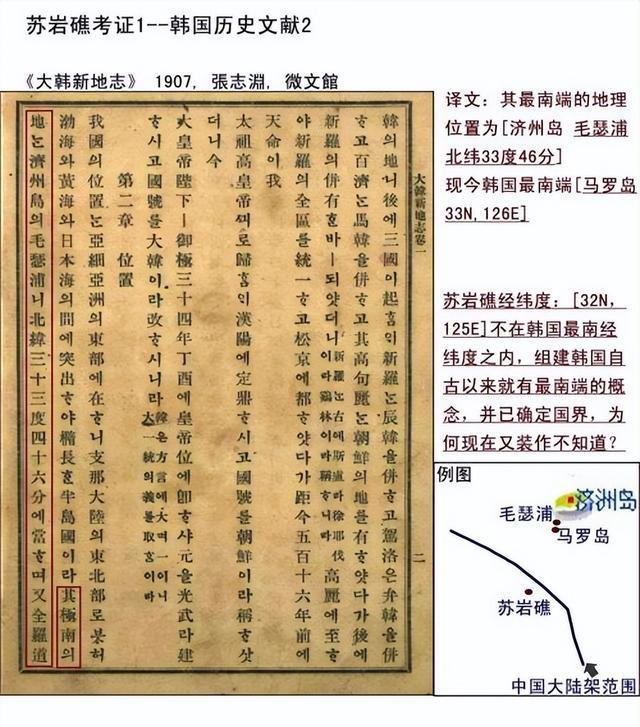 苏岩礁考证1--韩国历史文献2
《大韩新地志》 1907，張志淵，微文館
大韓新地志卷一
二
韓의地니後에三國이起ᄒᆞᆷ이新羅ᄂᆞᆫ辰韓을併ᄒᆞ고駕洛은弁韓을併
ᄒᆞ고百濟ᄂᆞᆫ馬韓을併ᄒᆞ고其高句麗ᄂᆞᆫ朝鮮의地를有ᄒᆞ얏다가後에
新羅의併有ᄒᆞᆫ바ㅣ되얏더니新羅ᄂᆞᆫ古에斯盧라徐耶伐이라鷄林이라稱ᄒᆞ니라高麗에至ᄒᆞ
야新羅의全區를統一ᄒᆞ고松京에都ᄒᆞ얏다가距今五百十六年前에
天命이我
太祖高皇帝ᄭᅴ로歸ᄒᆞᆷ이漢陽에定鼎ᄒᆞ시고國號를朝鮮이라稱ᄒᆞ샷
더니今
大皇帝陛下ㅣ御極三十四年丁酉에皇帝位에卽ᄒᆞ샤元을光武라建
ᄒᆞ시고國號를大韓이라改ᄒᆞ시니라韓은方言에大며一이니大一統의義를取ᄒᆞᆷ이라
第二章 位置
我國의位置ᄂᆞᆫ亞細亞洲의東部에在ᄒᆞ니支那大陸의東北部로븟허
渤海와黃海와日本海의間에突出ᄒᆞ야楕長ᄒᆞᆫ半島國이라其極南의
地ᄂᆞᆫ濟州島의毛瑟浦니北緯三十三度四十六分에當ᄒᆞ며又全羅道
译文：其最南端的地理
位置为[济州岛 毛瑟浦
北纬33度46分]
现今韩国最南端[马罗岛
33N,126E]
苏岩礁经纬度：[32N，
125E]不在韩国最南经
纬度之内，组建韩国自
古以来就有最南端的概
念，并已确定国界，为
何现在又装作不知道？
例图
济州岛
毛瑟浦
马罗岛
苏岩礁
中国大陆架范围